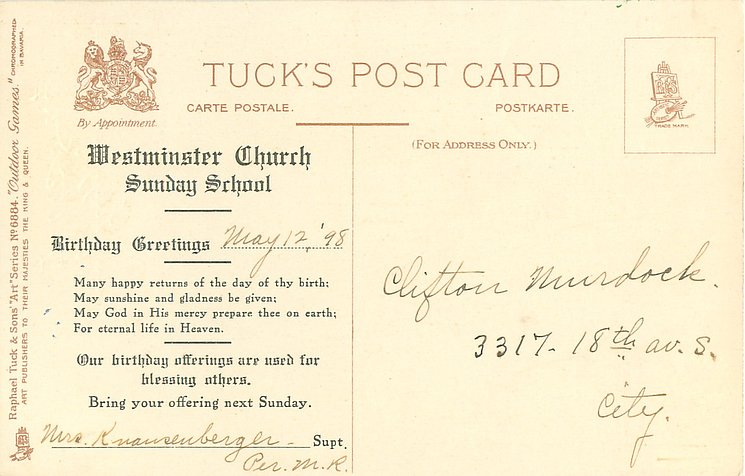 Raphael Tuck & Sons' "Art" Series Nº 6884. "Outdoor Games."
ART PUBLISHERS TO THEIR MAJESTIES THE KING & QUEEN.
CHROMOGRAPHED
IN BAVARIA.
By Appointment.
TUCK'S POST CARD
CARTE POSTALE.
POSTKARTE.
TRADE MARK.
(FOR ADDRESS ONLY.)
Westminster Church
Sunday School
Birthday Greetings May 12, '98
Many happy returns of the day of thy birth;
May sunshine and gladness be given;
May God in His mercy prepare thee on earth;
For eternal life in Heaven.
Our birthday offerings are used for
blessing others.
Bring your offering next Sunday.
Mrs. Supt.
Per. M. R.
Clifton Murdock.
3317- 18th av. S.
City.